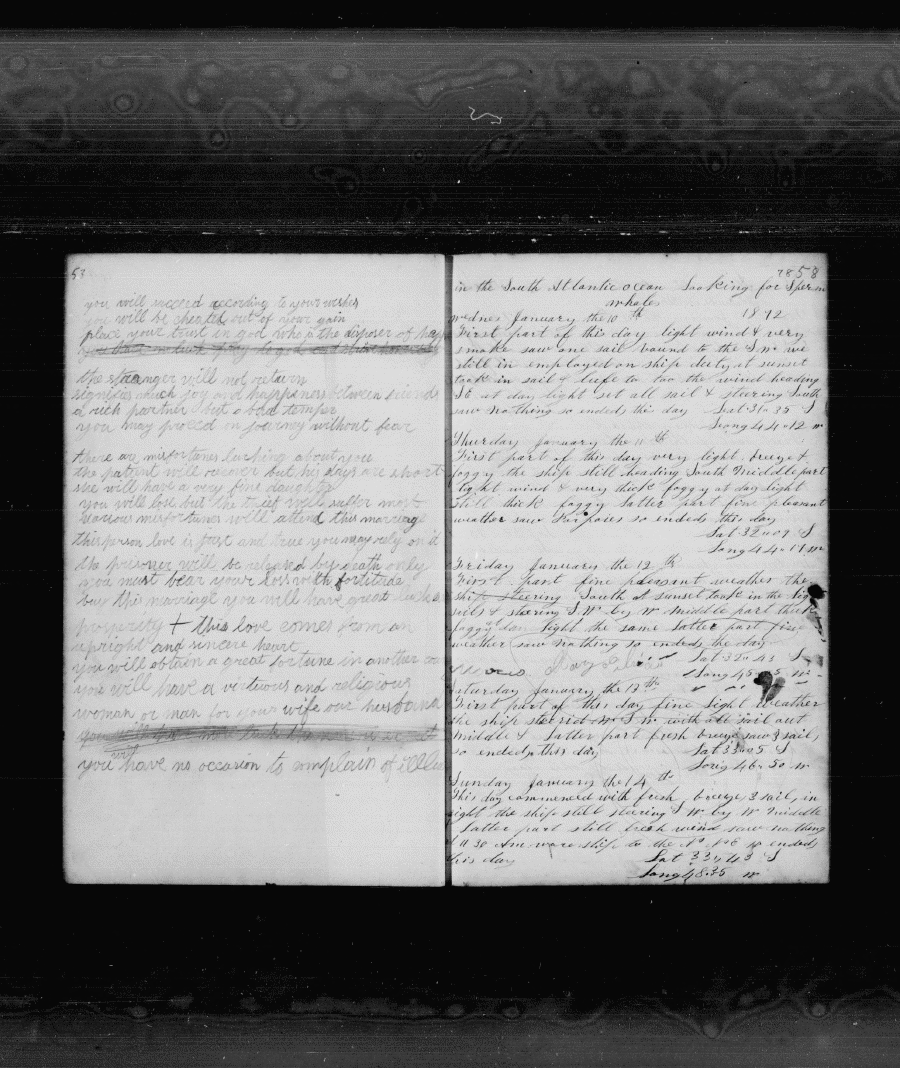 53
you will succeed according to your wishes
you will be cheated out of your gain
place your trust in god who is the disposer of hap
the stranger will not return
signifies much joy and happiness between friends
a rich partner but a bad temper
you may proceed on journey without fear
there are misfortunes lurking about you
the patient will recover but his days are short
she will have a very fine daughter
you will lose but the thief will suffer most
various misfortunes will attend this marriage
this person love is just and true you may rely on it
the prisoner will be released by death only
you must bear your loss with fortitude
buy this marriage you will have great
prosperity + this love comes from an
upright and sincere heart
you will obtain a great fortune in another
you will have a virtuous and religious
woman or man for your wife our husband
you will have no occasion to complain of
58
in the South Atlantic ocean Looking for Sperm
whales
Wednes January the 10th 1872
First part of this day light wind & very
smoke saw one sail bound to the S W we
still in employed on ship duty at sunset
took in sail & luft to too the wind heading
S E at day light set all sail & steering South
saw nothing so ended this day Lat 31 " 35 S
Long 44 " 12 W
Thursday January the 11th
First part of this day very light breeze &
foggy the ship still heading South Middle part
light wind & very thick foggy at day light
still thick foggy Latter part fine pleasant
weather saw Porpoies so ended this day
Lat 32 " 09 S
Long 44 " 11 W
Friday January the 12th
First part fine pleasant weather the
ship steering South at sunset took in the light
sails & steering S W by W Middle part thick
foggy day light the same Latter part fine
weather saw nothing so ended the day
Lat 32 " 43 S
Long 45 " 35 W
Saturday January the 13th
First part of this day fine light weather
the ship steeriot W S W with all sail out
Middle & Latter part fresh breeze saw 3 sail,
so ended this day Lat 33 " 05 S
Long 46 " 50 W
Sunday January the 14th
This day commenced with fresh breeze, 3 sail, in
sight the ship still steering S W by W Middle
& Latter part still fresh wind saw nothing
11 30 Am ware ship to the N N E so ended
this day Lat 33 " 43 S
Long 48 " 35 W